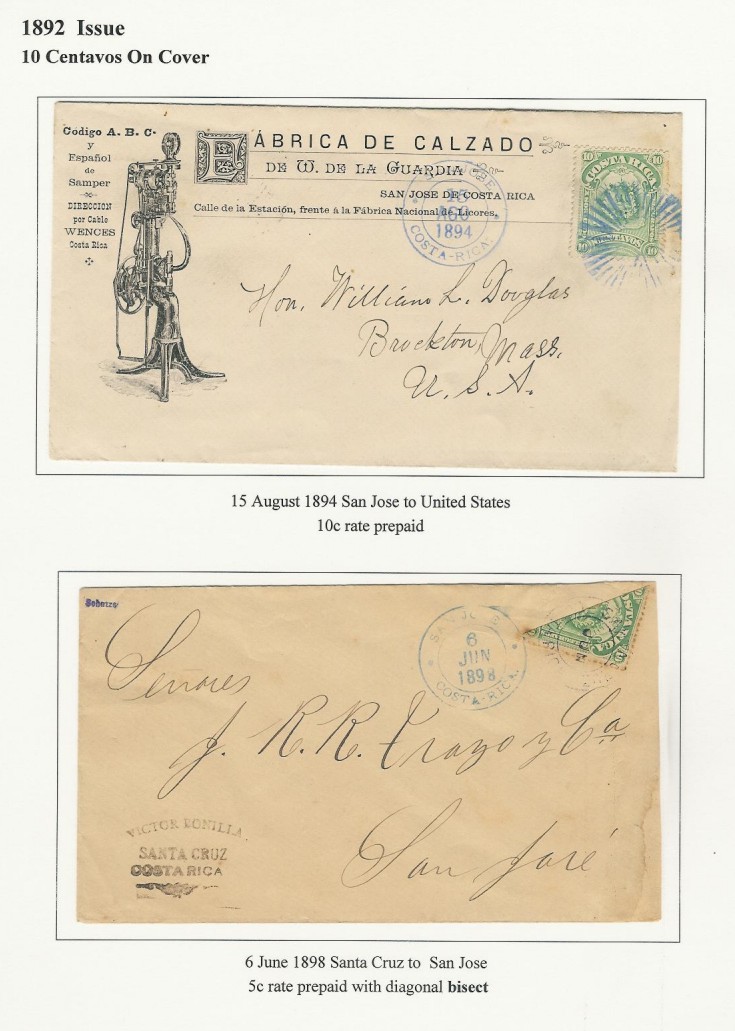 1892 Issue
10 Centavos On Cover
Codigo A. B. C.
y
Español
de
Samper
DIRECCION
por Cable
WENCES
Costa Rica
FÁBRICA DE CALZADO
DE W. DE LA GUARDIA
SAN JOSE DE COSTA RICA
Calle de la Estación, frente á la Fábrica Nacional de Licores.
1894
COSTA-RICA.
10 10
COSTA RICA
10 10
Hon. William L. Douglas
Brockton, Mass.
U. S. A.
15 August 1894 San Jose to United States
10c rate prepaid
SAN JOSE
6
JUN
1898
COSTA-RICA.
Señores
J. R. R. Troyo y Ca
San José
VICTOR BONILLA
SANTA CRUZ
COSTA RICA
6 June 1898 Santa Cruz to San Jose
5c rate prepaid with diagonal bisect